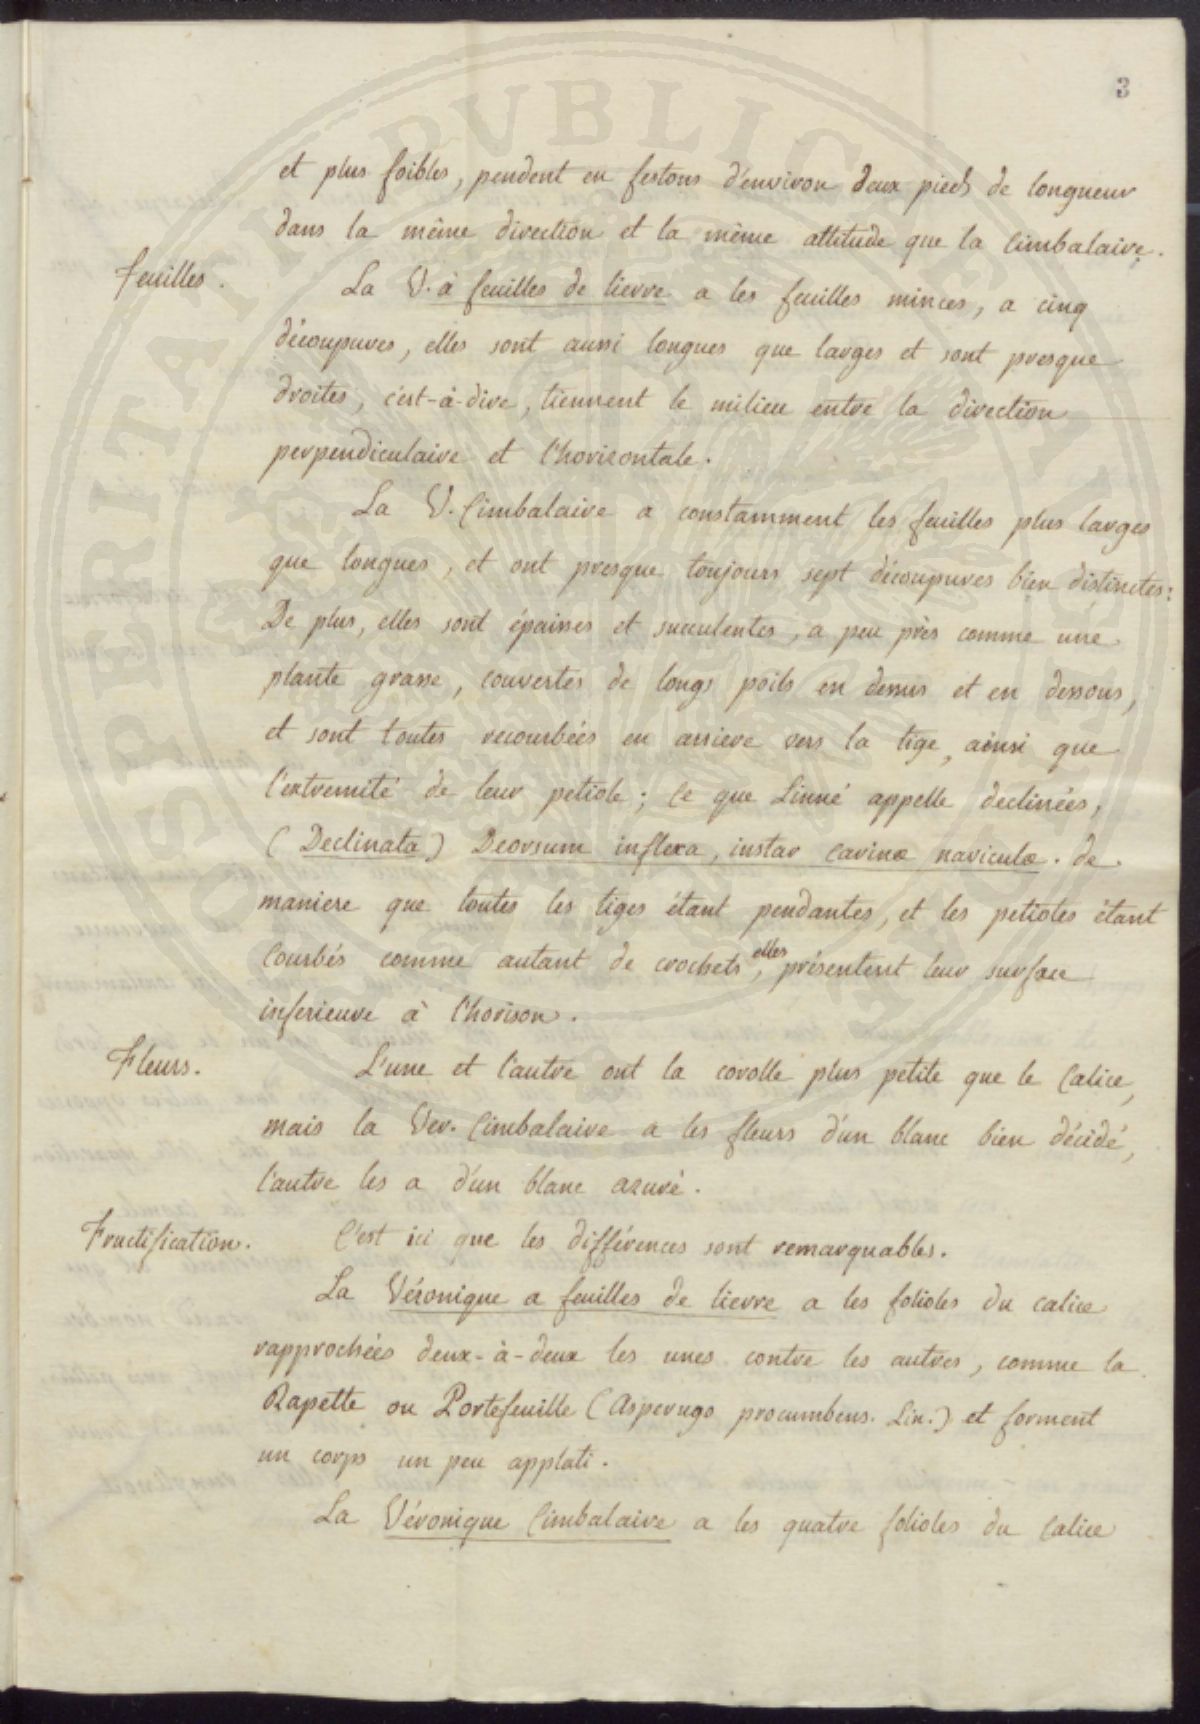 3
et plus foibles, pendent en festons d'environ deux pieds de longueur
dans la même direction et la même attitude que la Cimbalaire.
feuilles.
La V. à feuilles de lierre a les feuilles minces, a cinq
découpures, elles sont aussi longues que larges et sont presque
droites, c'est-à-dire, tiennent le milieu entre la direction
perpendiculaire et l'horizontale.
La V. Cimbalaire a constamment les feuilles plus larges
que longues, et ont presque toujours sept découpures bien distinctes:
De plus, elles sont épaisses et succulentes, a peu près comme une
plante grasse, couvertes de longs poils en dessus et en dessous,
et sont toutes recourbées en arriere vers la tige, ainsi que
l'extremité de leur petiole; ce que Linné appelle declinées,
(Declinata) Deorsum inflexa, instar carinæ naviculæ. de
maniere que toutes les tiges étant pendantes, et les petioles étant
Courbés comme autant de crochets, elles présentent leur surface
inferieure à l'horison.
Fleurs.
L'une et l'autre ont la corolle plus petite que le Calice,
mais la Ver. Cimbalaire a les fleurs d'un blanc bien décidé,
l'autre les a d'un blanc azuré.
Fructification.
C'est ici que les différences sont remarquables.
La Véronique a feuilles de lierre a les folioles du calice
rapprochées deux-à-deux les unes contre les autres, comme la
Rapette ou Portefeuille (Asperugo procumbens. Lin.) et forment
un corps un peu applati.
La Véronique Cimbalaire a les quatre folioles du Calice
PROSPERITATI PUBLICAE